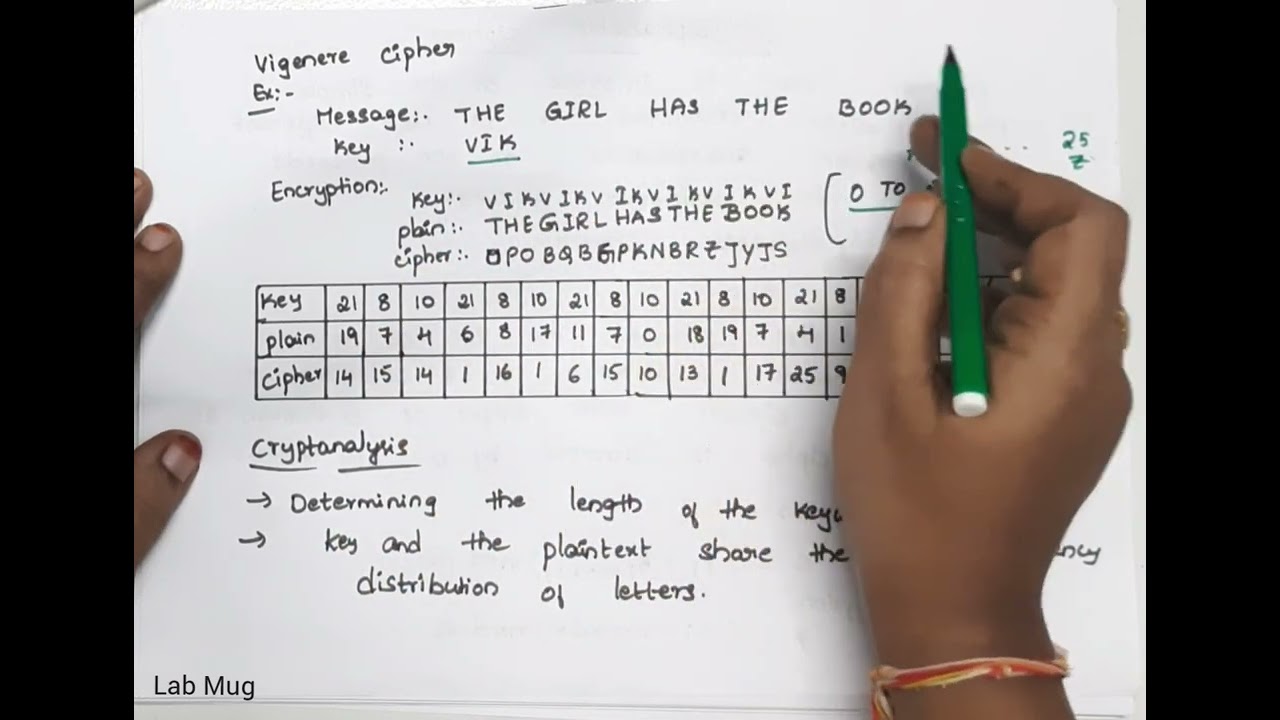 Vigenere Cipher
Ex:-
Message:- THE GIRL HAS THE BOOK
Key :- VIK
25
Z
Encryption:-
Key:- V I K V I K V I K V I K V I K V I
0 TO
plain:- THE GIRL HAS THE BOOK
cipher:- OPOBQBGPKNBRZJYJS
Key 21 8 10 21 8 10 21 8 10 21 8 10 21 8
plain 19 7 4 6 8 17 11 7 0 18 19 7 4 1
cipher 14 15 14 1 16 1 6 15 10 13 1 17 25 9
Cryptanalysis
→ Determining the length of the
→ key and the plaintext share the
distribution of letters.
Lab Mug